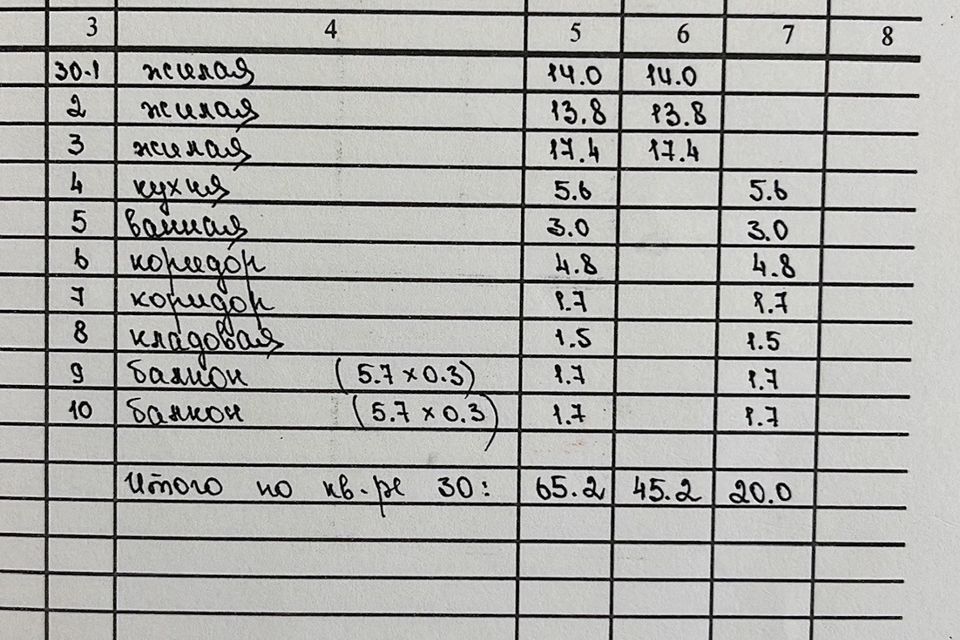 3 4 5 6 7 8
30-1 жилая 14.0 14.0
2 жилая 13.8 13.8
3 жилая 17.4 17.4
4 кухня 5.6 5.6
5 ванная 3.0 3.0
6 коридор 4.8 4.8
7 коридор 1.7 1.7
8 кладовая 1.5 1.5
9 балкон (5.7 × 0.3) 1.7 1.7
10 балкон (5.7 × 0.3) 1.7 1.7
Итого по кв-ре 30: 65.2 45.2 20.0